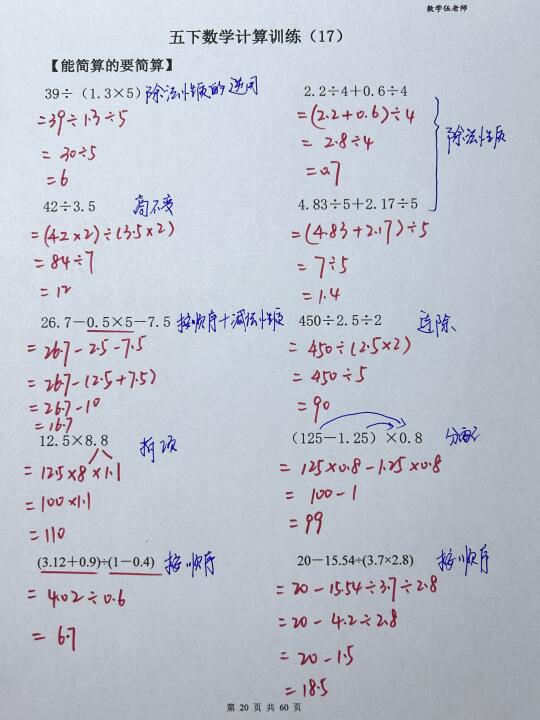 数学伍老师
五下数学计算训练（17）
【能简算的要简算】
39÷（1.3×5） 除法性质的逆用
=39÷1.3÷5
= 30÷5
=6
2.2÷4+0.6÷4
=(2.2+0.6)÷4
= 2.8÷4
=0.7
除法性质
42÷3.5 商不变
=(42×2)÷(3.5×2)
=84÷7
=12
4.83÷5+2.17÷5
=(4.83+2.17)÷5
=7÷5
=1.4
26.7－0.5×5－7.5 按顺序+减法性质
=26.7-2.5-7.5
=26.7-(2.5+7.5)
=26.7-10
=16.7
450÷2.5÷2 连除
= 450÷(2.5×2)
= 450÷5
=90
12.5×8.8 拆项
=12.5×8×1.1
=100×1.1
=110
（125－1.25）×0.8 分配
=125×0.8-1.25×0.8
= 100-1
=99
(3.12＋0.9)÷(1－0.4) 按顺序
= 4.02÷0.6
= 6.7
20－15.54÷(3.7×2.8) 按顺序
=20-15.54÷3.7÷2.8
=20-4.2÷2.8
=20-1.5
=18.5
第 20 页 共 60 页